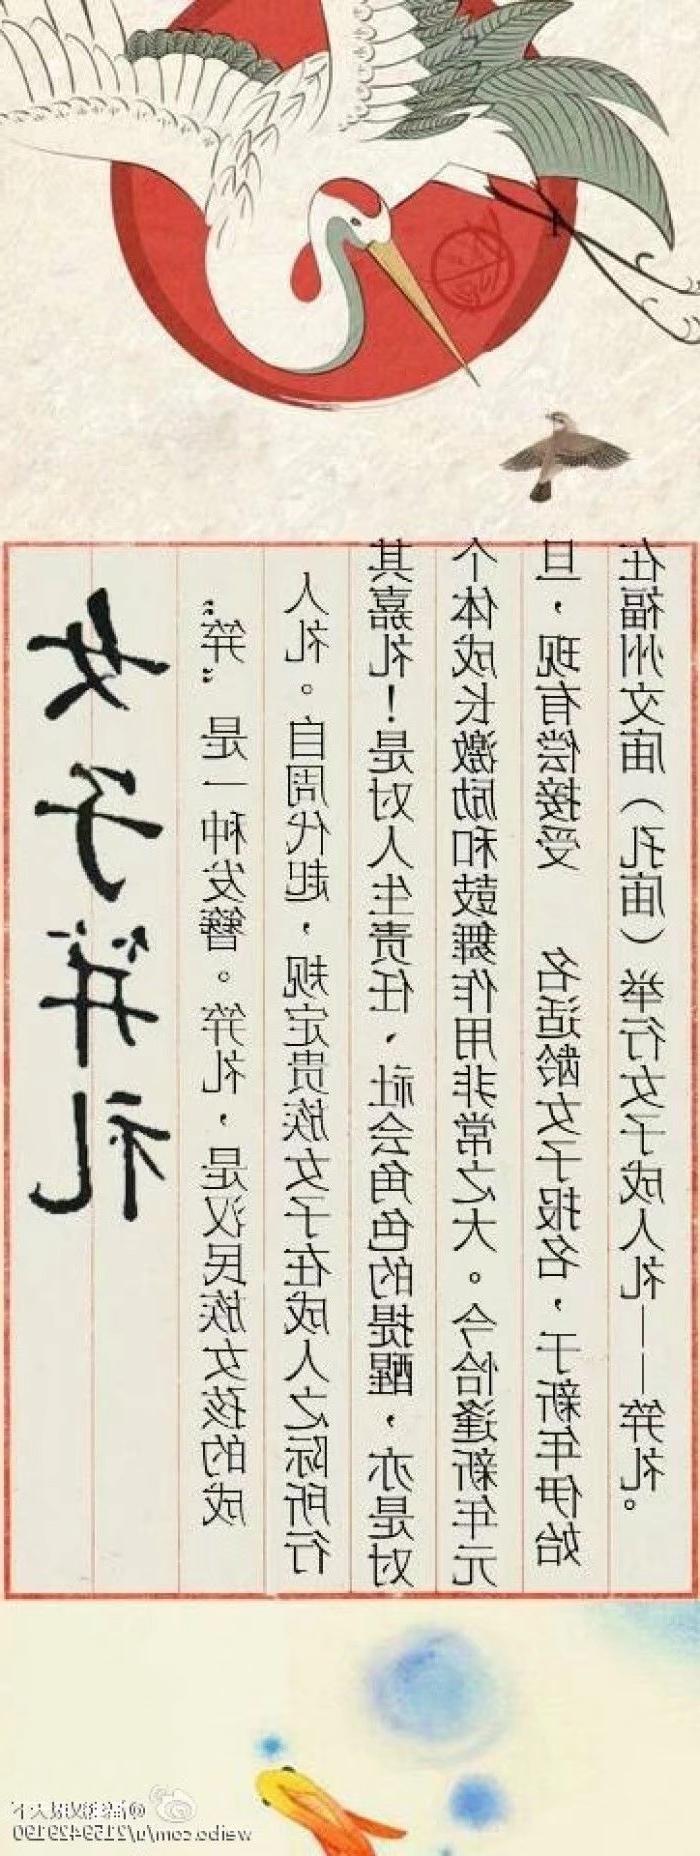 女子笄礼
“笄”是一种发簪。笄礼，是汉民族女孩的成
人礼。自周代起，规定贵族女子在成人之际所行
其嘉礼！是对人生责任、社会角色的提醒，亦是对
个体成长激励和鼓舞作用非常之大。今恰逢新年元
旦，现有偿接受 名适龄女子报名，于新年伊始
在福州文庙（孔庙）举行女子成人礼——笄礼。
@福建汉服天下
weibo.com/u/2159429190